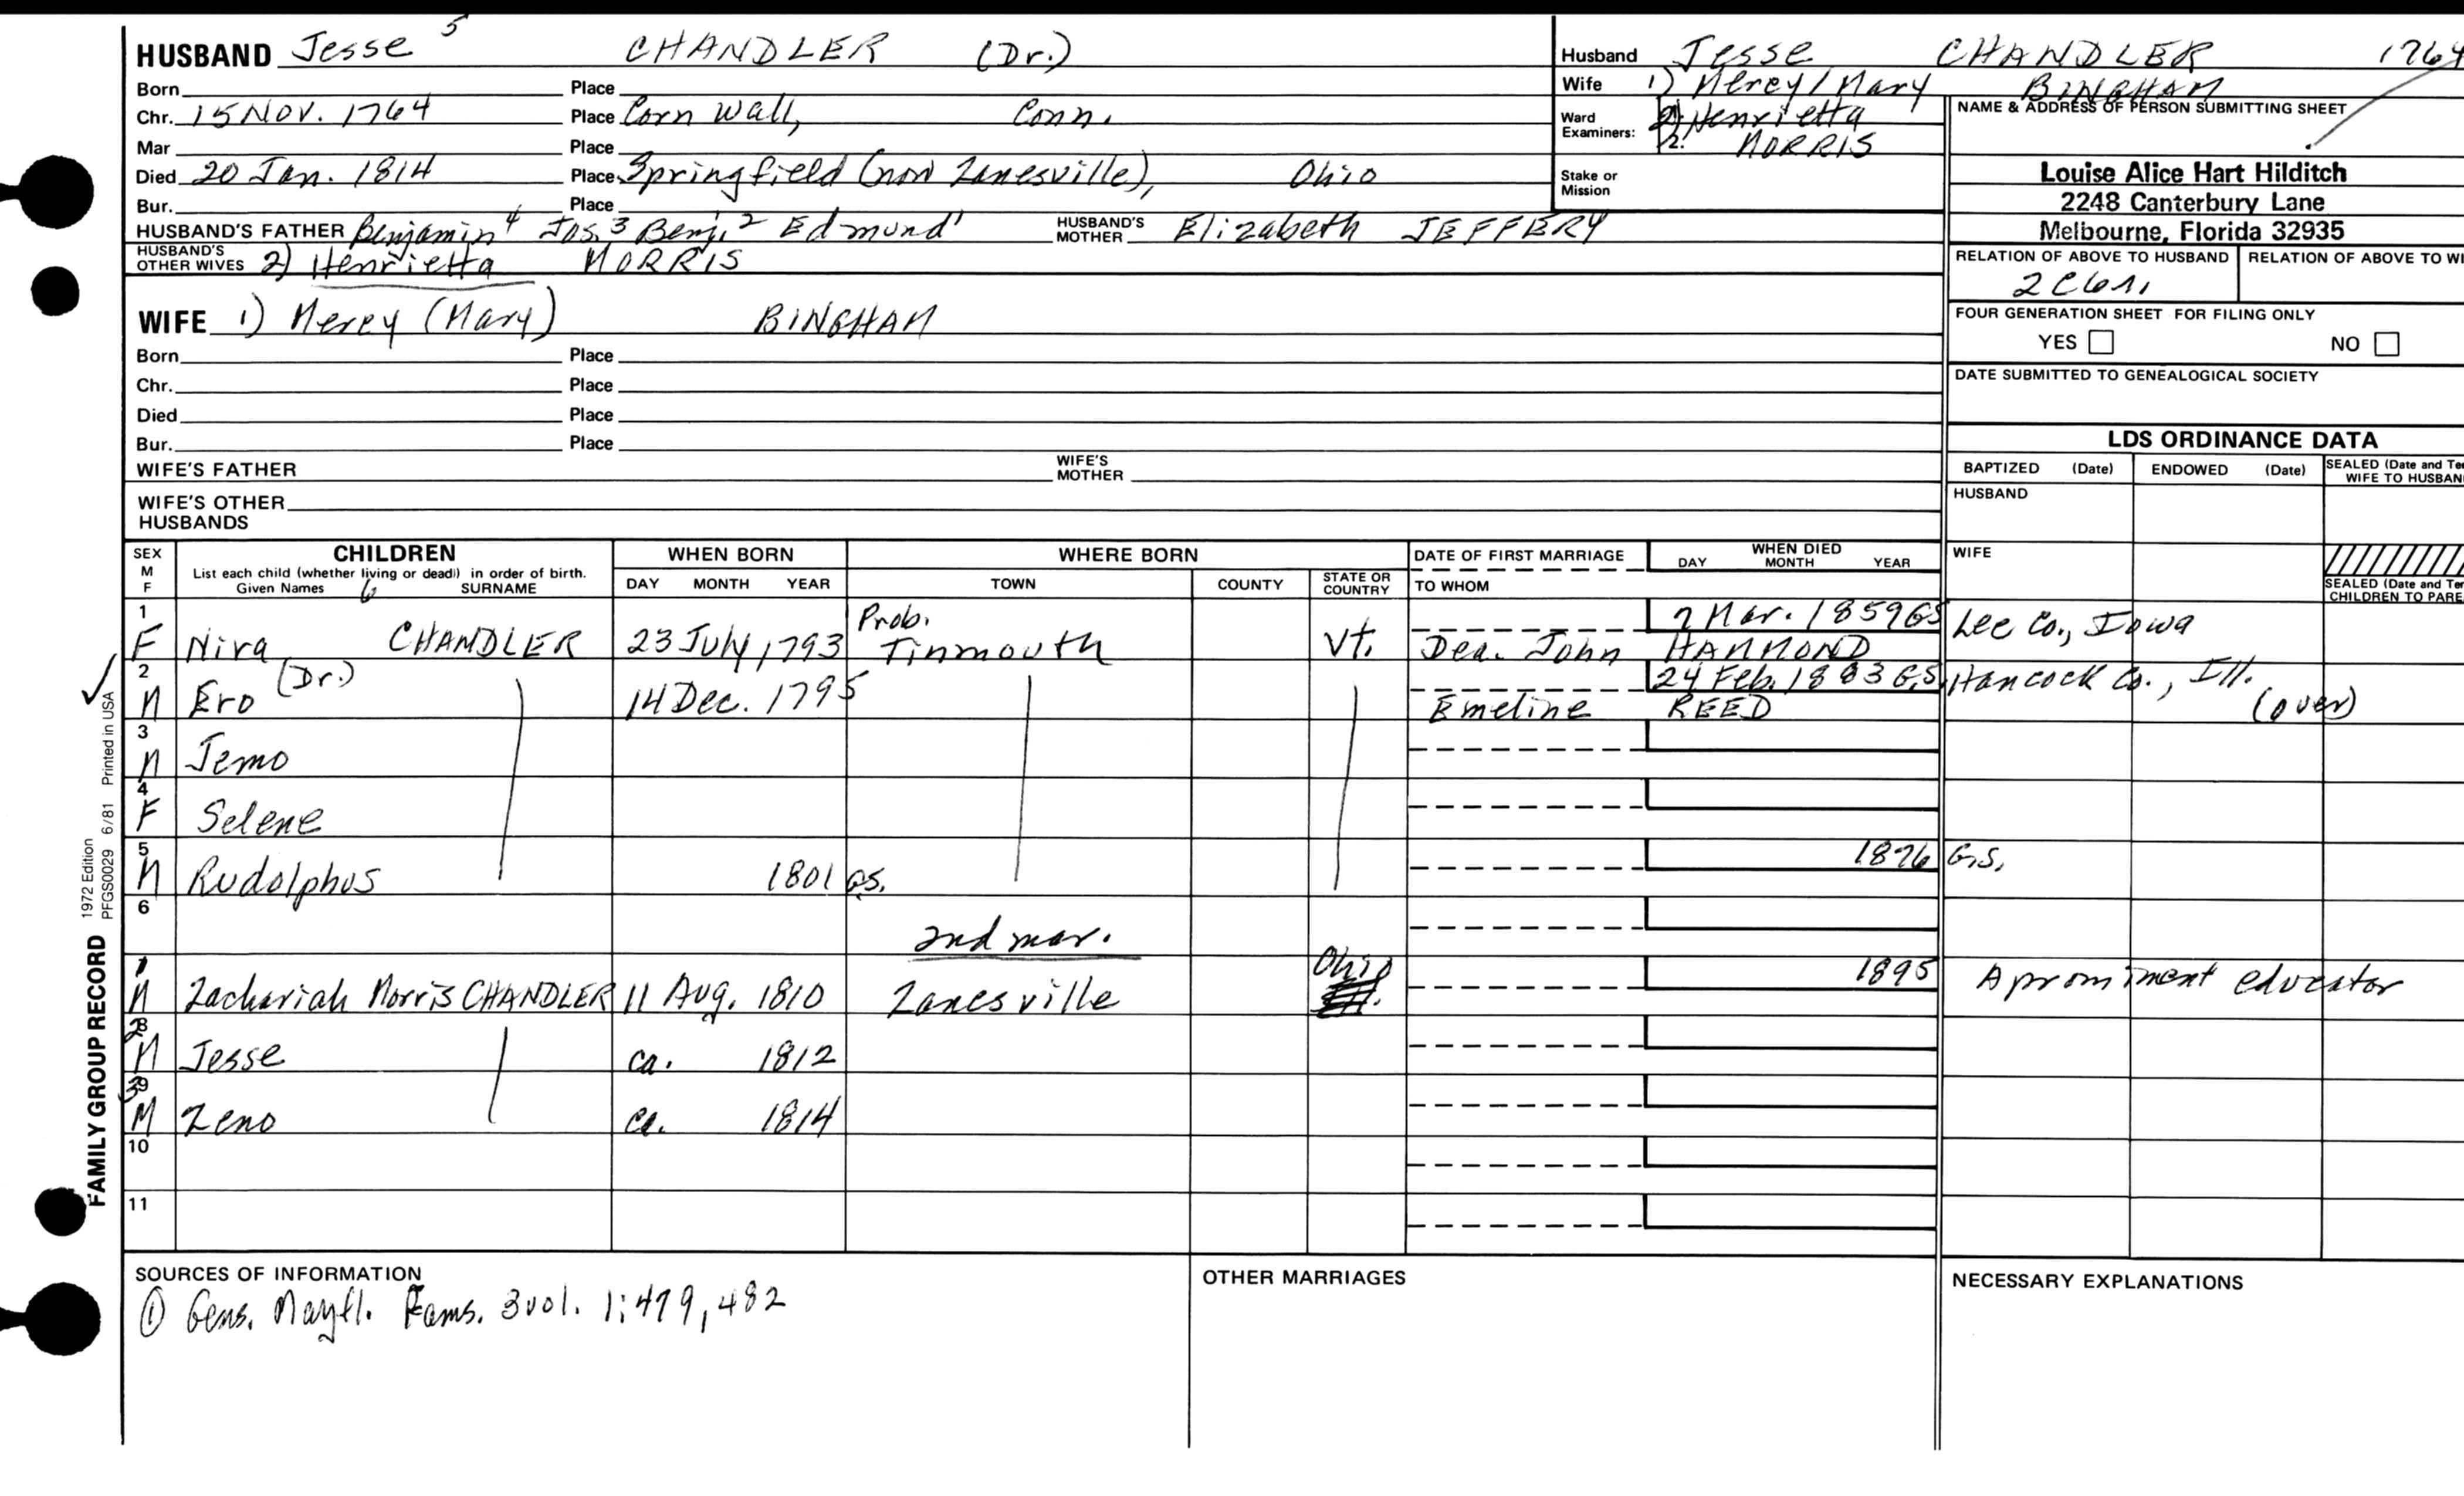 HUSBAND Jesse 5 CHANDLER (Dr.)
Born Place
Chr. 15 Nov. 1764 Place Corn Wall, Conn.
Mar Place
Died 20 Jan. 1814 Place Springfield (now Zanesville), Ohio
Bur. Place
HUSBAND'S FATHER Benjamin 4 Jos. 3 Benj. 2 Edmund 1 HUSBAND'S MOTHER Elizabeth JEFFERY
HUSBAND'S OTHER WIVES 2) Henrietta MORRIS
WIFE 1) Mercy (Mary) BINGHAM
Born Place
Chr. Place
Died Place
Bur. Place
WIFE'S FATHER WIFE'S MOTHER
WIFE'S OTHER HUSBANDS
Husband Jesse CHANDLER 1764
Wife 1) Mercy/Mary BINGHAM
Ward Examiners: 2) Henrietta
2. MORRIS
Stake or Mission
NAME & ADDRESS OF PERSON SUBMITTING SHEET
Louise Alice Hart Hilditch
2248 Canterbury Lane
Melbourne, Florida 32935
RELATION OF ABOVE TO HUSBAND RELATION OF ABOVE TO WI
2C6r.
FOUR GENERATION SHEET FOR FILING ONLY
YES NO
DATE SUBMITTED TO GENEALOGICAL SOCIETY
LDS ORDINANCE DATA
BAPTIZED (Date) ENDOWED (Date) SEALED (Date and Te
WIFE TO HUSBAN
HUSBAND
WIFE
SEALED (Date and Te
CHILDREN TO PARE
SEX M F
CHILDREN
List each child (whether living or dead) in order of birth.
Given Names 6 SURNAME
WHEN BORN
DAY MONTH YEAR
WHERE BORN
TOWN COUNTY STATE OR COUNTRY
DATE OF FIRST MARRIAGE
TO WHOM
WHEN DIED
DAY MONTH YEAR
1 Prob. 2 Mar. 1859 GS Lee Co., Iowa
F Nira CHANDLER 23 July 1793 Tinmouth Vt. Dea. John HAMMOND
2 (Dr.) 24 Feb. 1883 G.S. Hancock Co., Ill.
M Ero 14 Dec. 1795 Emeline REED (over)
3
M Jemo
4
F Selene
5 1876 G.S.
M Rudolphus 1801 GS.
6
2nd mar.
1 Ohio 1895 A prominment educator
M Zachariah Morris CHANDLER 11 Aug. 1810 Zanesville
2 8
M Jesse ca. 1812
3 9
M Zeno ca. 1814
10
11
SOURCES OF INFORMATION
① Gens. Mayfl. Fams. 3 vol. 1:479, 482
OTHER MARRIAGES
NECESSARY EXPLANATIONS
FAMILY GROUP RECORD
1972 Edition
PFGS0029 6/81 Printed in USA